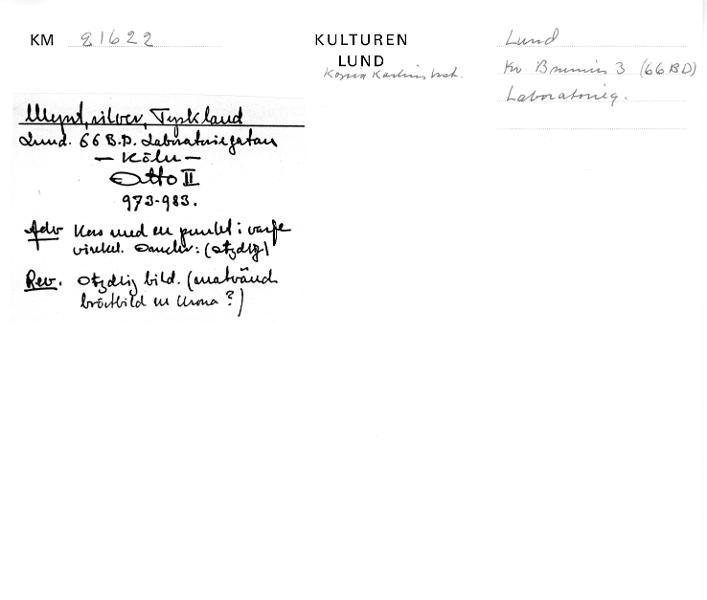 KM 81622
KULTUREN
LUND
Lund
Kv. 3 (66 BD)
Laboratorieg.
Mynt, silver, Tyskland
Lund. 66 B.D. Laboratoriegatan
— Köln —
Otto II
973-983.
Adv Kors med en punkt i varje
vinkel. Omskr: (otydlig)
Rev. Otydlig bild. (omvänd
bröstbild en krona ?)